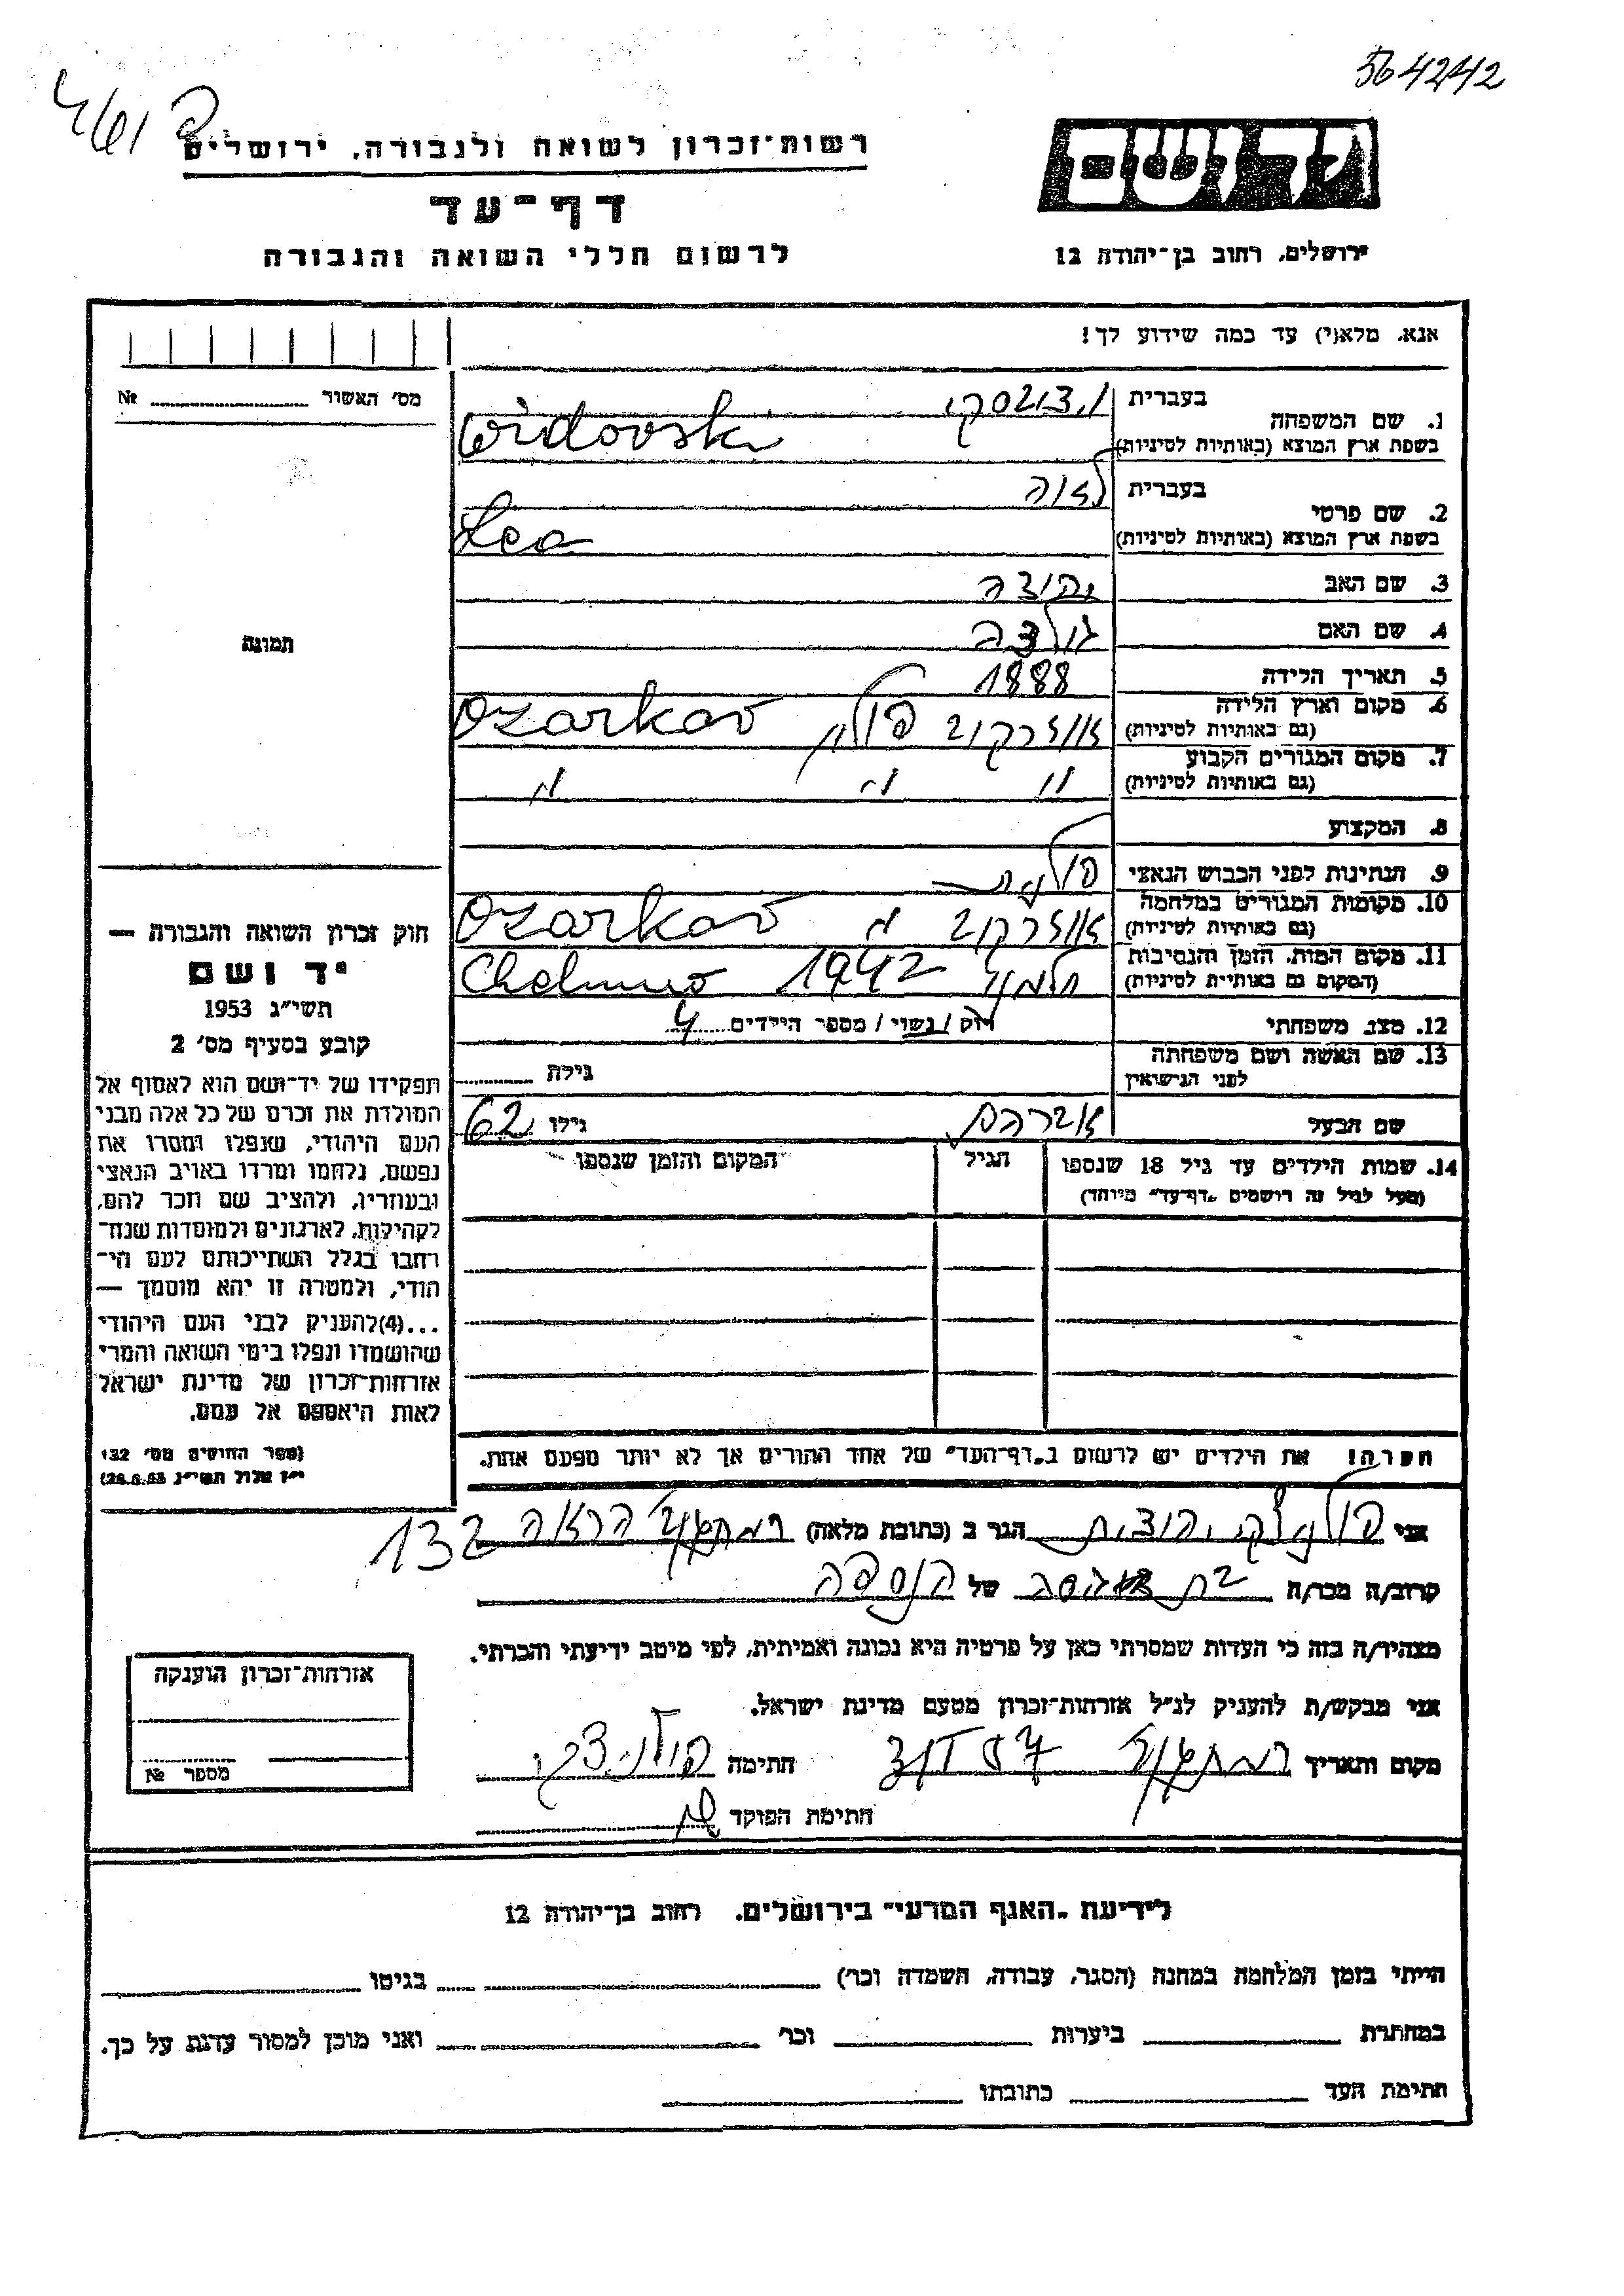 5644242
רשות־זכרון לשואה ולגבורה, ירושלים
יד ושם
דף־עד
לרשום חללי השואה והגבורה
ירושלים, רחוב בן־יהודה 12
אנא, מלא(י) עד כמה שידוע לך!
מס׳ האשור № 
1. שם המשפחה בעברית וידובסקי
בשפת ארץ המוצא (באותיות לטיניות) Widovski
2. שם פרטי בעברית לאה
בשפת ארץ המוצא (באותיות לטיניות) Lea
3. שם האב יהודה
4. שם האם גולדה
5. תאריך הלידה 1888
6. מקום וארץ הלידה (גם באותיות לטיניות) אוזרקוב פולין Ozarkov
7. מקום המגורים הקבוע (גם באותיות לטיניות) " " "
8. המקצוע
9. הנתינות לפני הכבוש הנאצי פולנית
10. מקומות המגורים במלחמה (גם באותיות לטיניות) אוזרקוב " Ozarkov
11. מקום המות, הזמן והנסיבות (המקום גם באותיות לטיניות) חלמנו 1942 Chelmno
12. מצב משפחתי רוק / נשוי / מספר הילדים 4
13. שם האשה ושם משפחתה לפני הנישואין גילה
שם הבעל אברהם גילו 62
14. שמות הילדים עד גיל 18 שנספו הגיל המקום והזמן שנספו
(מעל לגיל זה רושמים „דף־עד״ מיוחד)
הערה! את הילדים יש לרשום ב„דף־העד״ של אחד ההורים אך לא יותר מפעם אחת.
תמונה
חוק זכרון השואה והגבורה —
יד ושם
תשי״ג 1953
קובע בסעיף מס׳ 2
תפקידו של יד־ושם הוא לאסוף אל
המולדת את זכרם של כל אלה מבני
העם היהודי, שנפלו ומסרו את
נפשם, נלחמו ומרדו באויב הנאצי
ובעוזריו, ולהציב שם וזכר להם,
לקהילות, לארגונים ולמוסדות שנח־
רבו בגלל השתייכותם לעם הי־
הודי, ולמטרה זו יהא מוסמך —
...(4)להעניק לבני העם היהודי
שהושמדו ונפלו בימי השואה והמרי
אזרחות־זכרון של מדינת ישראל
לאות היאספם אל עמם.
(ספר החוקים מס׳ 132
י״ז אלול תשי״ג 28.8.53)
אני יהודית הגר ב (כתובת מלאה) הרואה 132
קרוב/ה מכר/ה בת של הנספה
מצהיר/ה בזה כי העדות שמסרתי כאן על פרטיה היא נכונה ואמיתית, לפי מיטב ידיעתי והכרתי.
אני מבקש/ת להעניק לנ״ל אזרחות־זכרון מטעם מדינת ישראל.
מקום ותאריך חתימה
חתימת הפוקד
אזרחות־זכרון הוענקה
מספר №
לידיעת „האגף המדעי״ בירושלים, רחוב בן־יהודה 12
הייתי בזמן המלחמה במחנה (הסגר, עבודה, השמדה וכר׳) בגיטו
במחתרת ביערות וכר׳ ואני מוכן למסור עדות על כך.
חתימת העד כתובתו